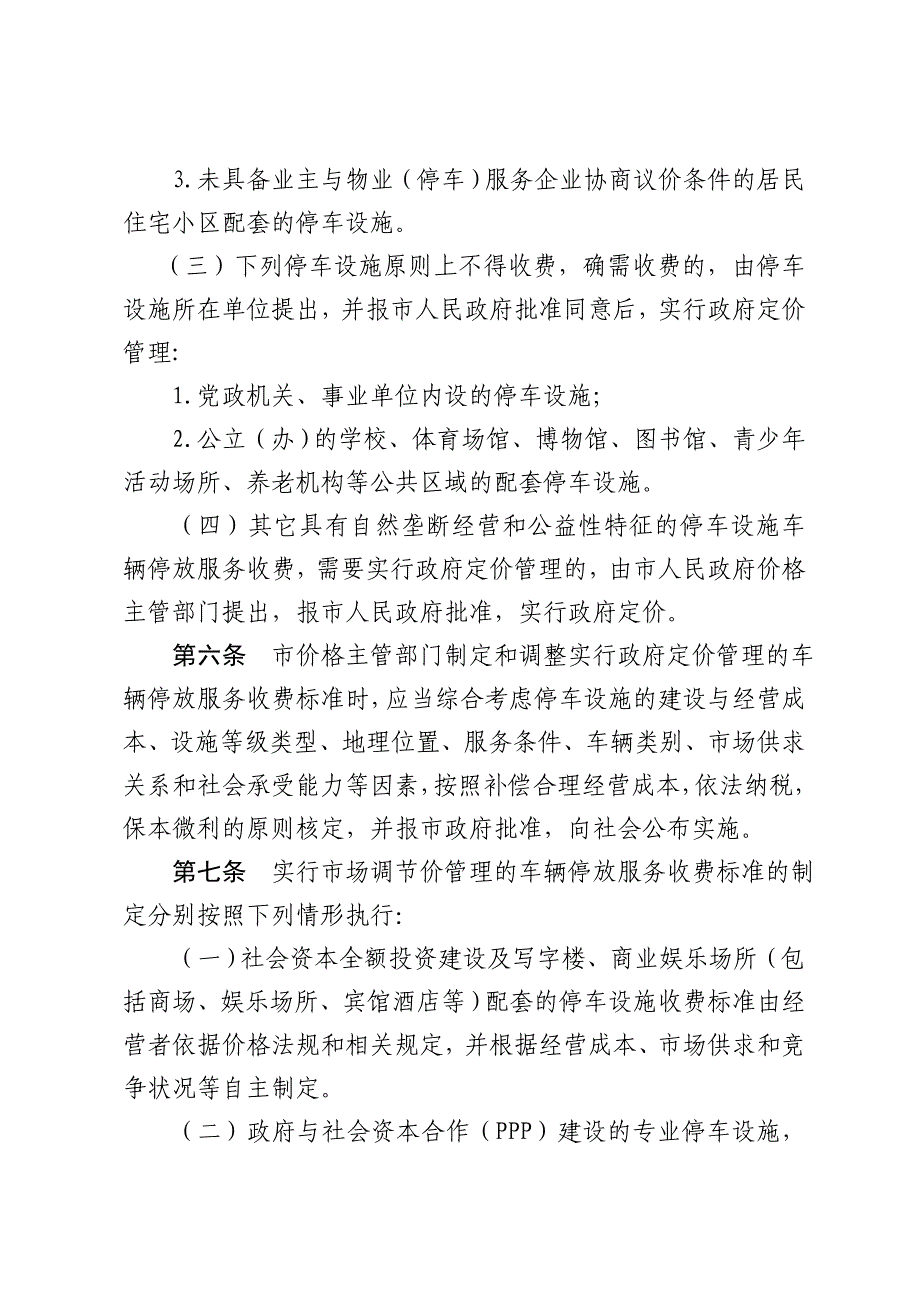 3.未具备业主与物业（停车）服务企业协商议价条件的居民
住宅小区配套的停车设施。
（三）下列停车设施原则上不得收费，确需收费的，由停车
设施所在单位提出，并报市人民政府批准同意后，实行政府定价
管理：
1.党政机关、事业单位内设的停车设施；
2.公立（办）的学校、体育场馆、博物馆、图书馆、青少年
活动场所、养老机构等公共区域的配套停车设施。
（四）其它具有自然垄断经营和公益性特征的停车设施车
辆停放服务收费，需要实行政府定价管理的，由市人民政府价格
主管部门提出，报市人民政府批准，实行政府定价。
第六条　市价格主管部门制定和调整实行政府定价管理的车
辆停放服务收费标准时，应当综合考虑停车设施的建设与经营成
本、设施等级类型、地理位置、服务条件、车辆类别、市场供求
关系和社会承受能力等因素，按照补偿合理经营成本，依法纳税，
保本微利的原则核定，并报市政府批准，向社会公布实施。
第七条　实行市场调节价管理的车辆停放服务收费标准的制
定分别按照下列情形执行：
（一）社会资本全额投资建设及写字楼、商业娱乐场所（包
括商场、娱乐场所、宾馆酒店等）配套的停车设施收费标准由经
营者依据价格法规和相关规定，并根据经营成本、市场供求和竞
争状况等自主制定。
（二）政府与社会资本合作（PPP）建设的专业停车设施，